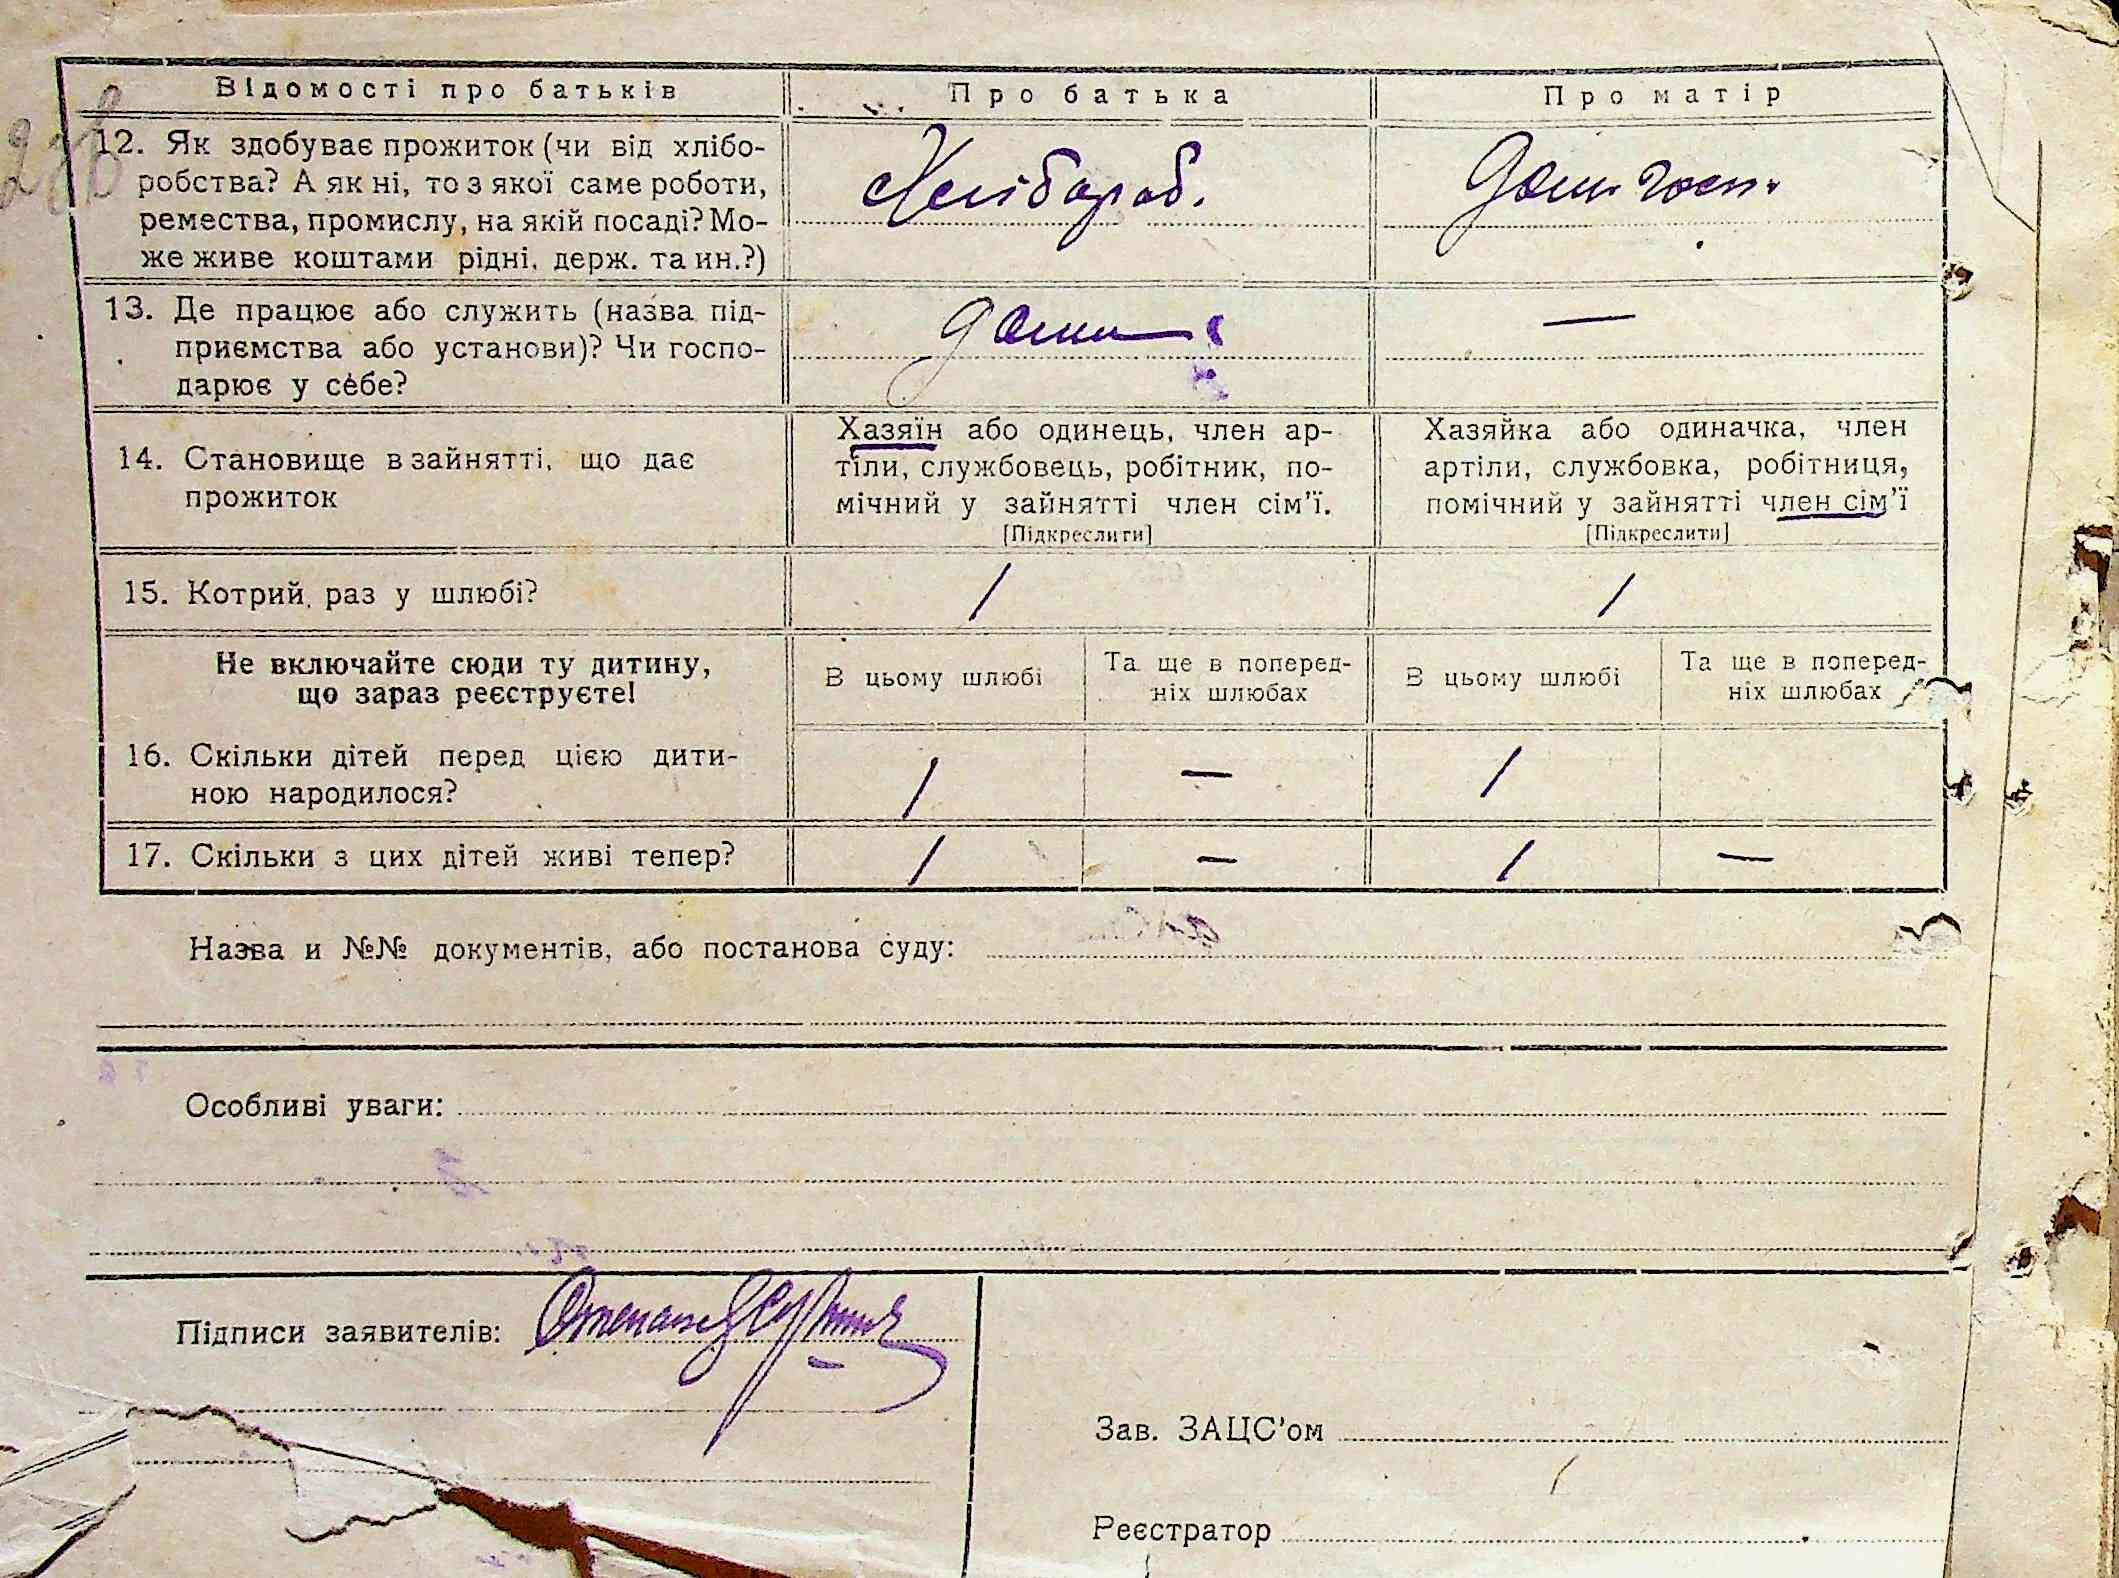 Відомості про батьків
Про батька
Про матір
12. Як здобуває прожиток (чи від хлібо-
робства? А як ні, то з якої саме роботи,
ремества, промислу, на якій посаді? Мо-
же живе коштами рідні, держ. та ин.?)
Хлібороб.
Дом. госп.
13. Де працює або служить (назва під-
приємства або установи)? Чи госпо-
дарює у себе?
дома
—
14. Становище в зайнятті, що дає
прожиток
Хазяїн або одинець, член ар-
тіли, службовець, робітник, по-
мічний у зайнятті член сім'ї.
[Підкреслити]
Хазяйка або одиначка, член
артіли, службовка, робітниця,
помічний у зайнятті член сім'ї
[Підкреслити]
15. Котрий раз у шлюбі?
1
1
Не включайте сюди ту дитину,
що зараз реєструєте!
В цьому шлюбі
Та ще в поперед-
ніх шлюбах
В цьому шлюбі
Та ще в поперед-
ніх шлюбах
16. Скільки дітей перед цією дити-
ною народилося?
1
—
1
17. Скільки з цих дітей живі тепер?
1
—
1
—
Назва и №№ документів, або постанова суду:
Особливі уваги:
Підписи заявителів:
Зав. ЗАЦС'ом
Реєстратор